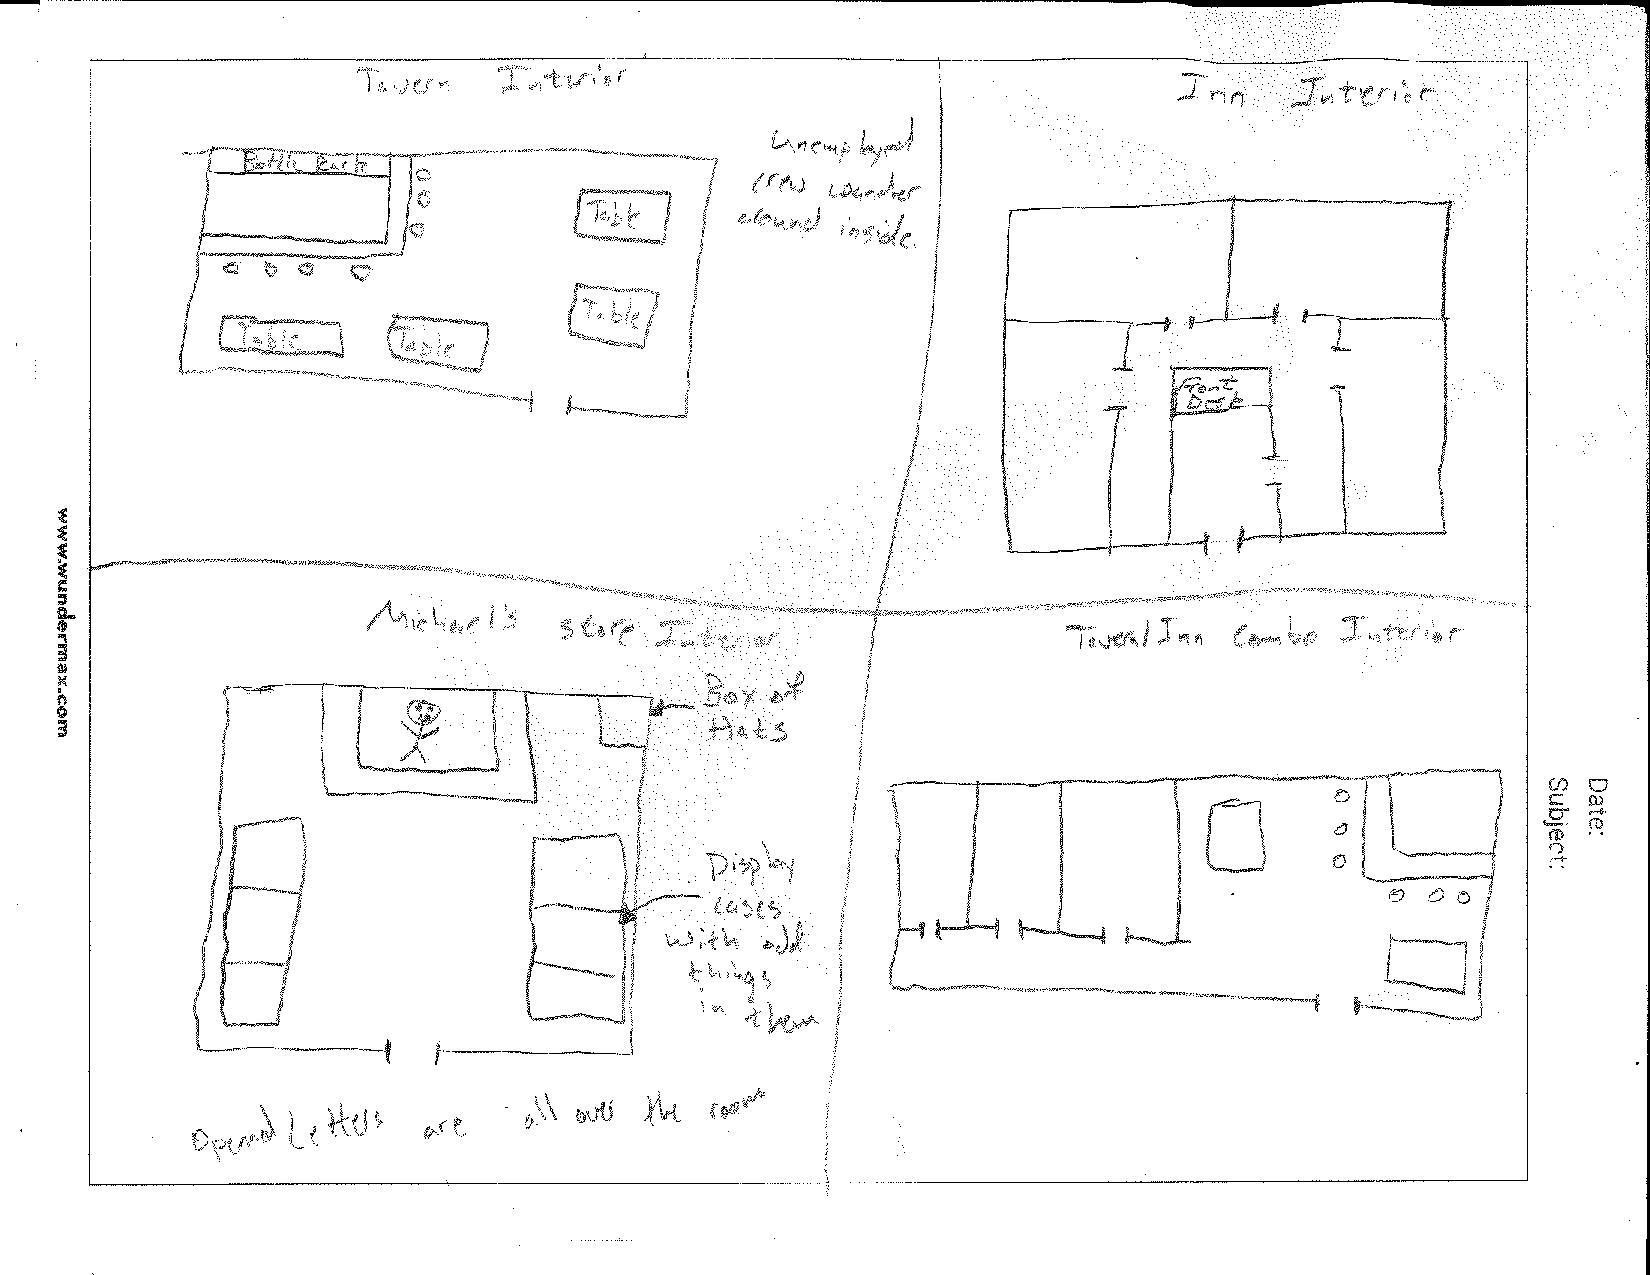 Tavern Interior
Bottle Rack
Table
Table
Table
Table
Unemployed
crew wander
around inside.
Inn Interior
Front
Desk
Michael's store Interior
Box of
Hats
Display
cases
with odd
things
in them
Opened Letters are all over the room
Tavern/Inn Combo Interior
www.wundermax.com
Date:
Subject: